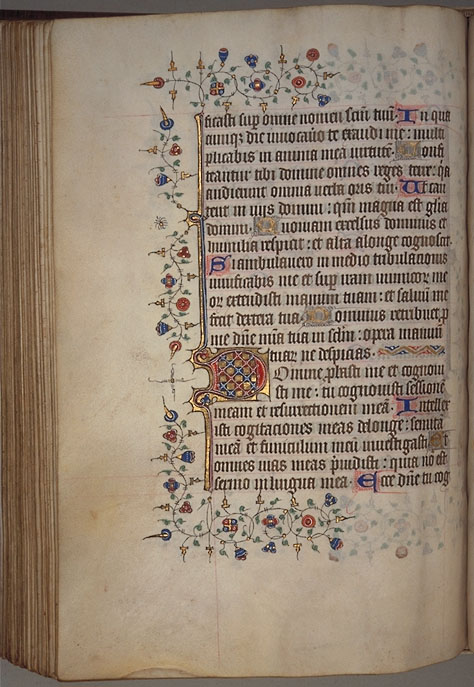 ficasti sup omne nomen scm tuu In qua
cumqz die invocavo te exaudi me : multi
plicabis in anima mea virtute Confi
teantur tibi domine omnes reges terre : qa
audierunt omnia verba oris tui Et can
tent in viis domini : qm magna est glia
domini Quoniam excelsus dominus et
humilia respicit : et alta alonge cognoscit
Si ambulavero in medio tribulationis
vivificabis me et sup iram inimicor me
or extendisti manum tuam : et salvum me
fecit dextera tua Dominus retribuet p
me dne mia tua in sclm : opera manuu
tuar ne despicias
Domine pbasti me et cognovi
sti me : tu cognovisti sessione
meam et resurrectionem mea Intellex
isti cogitaciones meas delonge : semita
mea et funiculum meu investigasti Et
omnes vias meas pvidisti : quia no est
sermo in lingua mea Ecce dne tu cog